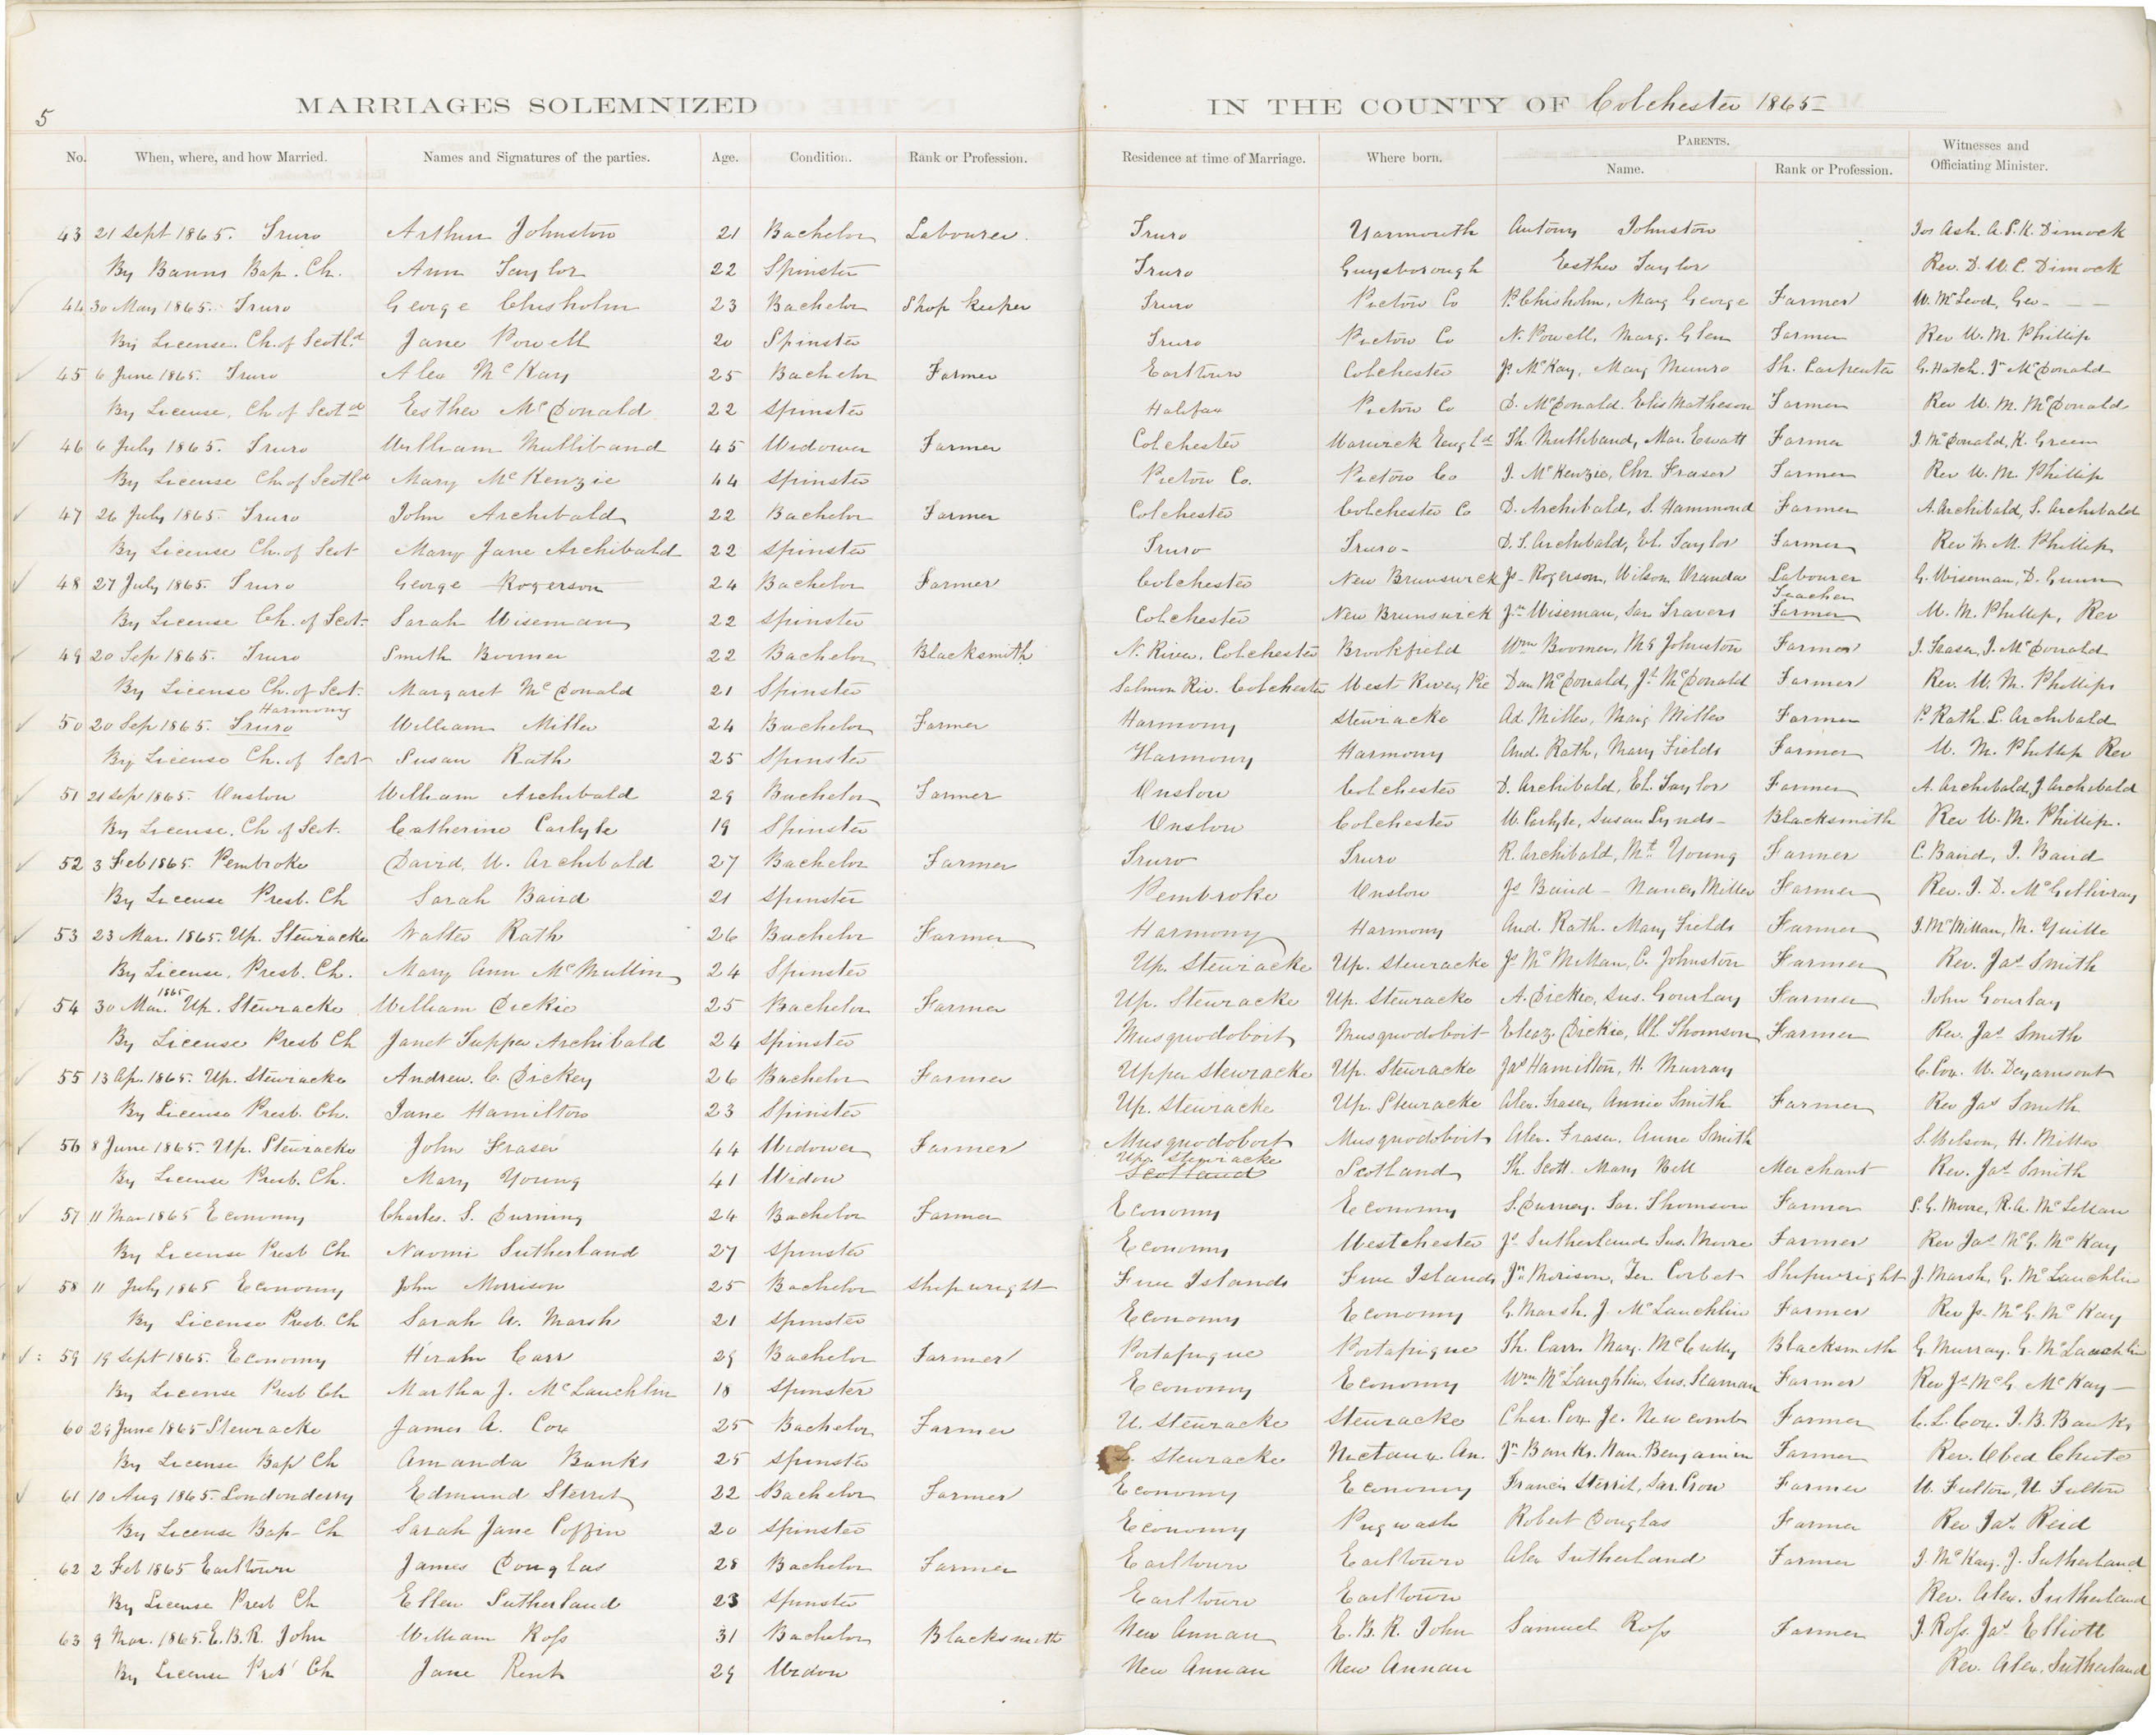 5
MARRIAGES SOLEMNIZED IN THE COUNTY OF Colchester 1865
PARENTS.
No. When, where, and how Married. Names and Signatures of the parties. Age. Condition. Rank or Profession. Residence at time of Marriage. Where born. Name. Rank or Profession. Witnesses and Officiating Minister.
43 21 Sept 1865. Truro Arthur Johnston 21 Bachelor Labourer. Truro Yarmouth Antony Johnston Jos Ash. A. S. K. Dimock
By Banns Bap. Ch. Ann Taylor 22 Spinster Truro Guysborough Esther Taylor Rev. D. W. C. Dimock
44 30 May 1865. Truro George Chisholm 23 Bachelor Shop keeper Truro Pictou Co P. Chisholm, Marg George Farmer W. McLeod, Geo - - -
By License. Ch. of Scotld Jane Powell 20 Spinster Truro Pictou Co N. Powell, Marg. Glen Farmer Rev W. M. Phillip
45 6 June 1865. Truro Alex McKay 25 Bachelor Farmer Earltown Colchester Js McKay, Marg Munro Sh. Carpenter G. Hatch. Jn McDonald
By License, Ch of Scotd Esther McDonald 22 Spinster Halifax Pictou Co D. McDonald. Elis Matheson Farmer Rev W. M. McDonald
46 6 July 1865. Truro William Mulliband 45 Widower Farmer Colchester Warwick Engld Th. Mulliband, Mar. Ewatt Farmer J. McDonald, K. Green
By License Ch of Scotld Mary McKenzie 44 Spinster Pictou Co. Pictou Co J. McKenzie, Chr Fraser Farmer Rev W. M. Phillip
47 26 July 1865. Truro John Archibald 22 Bachelor Farmer Colchester Colchester Co D. Archibald, S. Hammond Farmer A. Archibald, S. Archibald
By License Ch. of Scot Mary Jane Archibald 22 Spinster Truro Truro - D. T. Archibald, El. Taylor Farmer Rev W. M. Phillip
48 27 July 1865. Truro George Rogerson 24 Bachelor Farmer Colchester New Brunswick Js Rogerson, Wilson Labourer G. Wiseman, D. Gunn
Teacher
By License Ch. of Scot. Sarah Wiseman 22 Spinster Colchester New Brunswick Jn Wiseman, Sar Travers Farmer W. M. Phillip, Rev
49 20 Sep 1865. Truro Smith Boomer 22 Bachelor Blacksmith N. River, Colchester Brookfield Wm Boomer, Mt Johnston Farmer J. Fraser, J. McDonald
By License Ch. of Scot. Margaret McDonald 21 Spinster Salmon Riv. Colchester West River, Pic Dan McDonald, Jt McDonald Farmer Rev. W. M. Phillips
Harmony
50 20 Sep 1865. Truro William Miller 24 Bachelor Farmer Harmony Stewiacke Ad. Miller, Marg Miller Farmer P. Rath. L. Archibald
By License Ch. of Scot Susan Rath 25 Spinster Harmony Harmony And. Rath, Mary Fields Farmer W. M. Phillip Rev
51 21 Sep 1865. Onslow William Archibald 29 Bachelor Farmer Onslow Colchester D. Archibald, El. Taylor Farmer A. Archibald, J Archibald
By License. Ch of Scot. Catherine Carlyle 19 Spinster Onslow Colchester W. Carlyle, Susan Lynds - Blacksmith Rev W. M. Phillip.
52 3 Feb 1865 Pembroke David. W. Archibald 27 Bachelor Farmer Truro Truro R. Archibald, Mt Young Farmer C. Baird, J. Baird
By License Presb. Ch Sarah Baird 21 Spinster Pembroke Onslow Js Baird - Nancy Miller Farmer Rev. J. D. McGillivray
53 23 Mar. 1865. Up. Stewiacke Walter Rath 26 Bachelor Farmer Harmony Harmony And. Rath. Mary Fields Farmer J. McMillan, M. Yuille
By License, Presb. Ch. Mary Ann McMullin 24 Spinster Up. Stewiacke Up. Stewiacke Js McMillan, C. Johnston Farmer Rev. Jas Smith
1865
54 30 Mar. Up. Stewiacke William Dickie 25 Bachelor Farmer Up. Stewiacke Up. Stewiacke A. Dickie, Sus. Gourlay Farmer John Gourlay
By License Presb Ch Janet Tupper Archibald 24 Spinster Musquodoboit Musquodoboit Eleaz. Dickie, Thomson Farmer Rev. Jas Smith
55 13 Ap. 1865. Up. Stewiacke Andrew. C. Dickey 26 Bachelor Farmer Upper Stewiacke Up. Stewiacke Jas Hamilton, H. Murray C. Cox. W. Deyarmont
By License Presb. Ch. Jane Hamilton 23 Spinster Up. Stewiacke Up. Stewiacke Alex. Fraser, Annie Smith Farmer Rev Jas Smith
56 8 June 1865. Up. Stewiacke John Fraser 44 Widower Farmer Musquodoboit Musquodoboit Alex. Fraser. Anne Smith S. Wilson, H. Miller
Upr Stewiacke
By License Presb. Ch. Mary Young 41 Widow Scotland Scotland Th. Scott. Mary Bell Merchant Rev. Jas Smith
57 11 Mar 1865 Economy Charles. S. Durning 24 Bachelor Farmer Economy Economy S. Durney. Sar. Thomson Farmer S. G. Moore, R. A. McLellan
By License Presb Ch Naomi Sutherland 27 Spinster Economy Westchester Js Sutherland Sus. Moore Farmer Rev Jas McG. McKay
58 11 July 1865 Economy John Morrison 25 Bachelor Shipwright Five Islands Five Islands Jn Morison, Jen Corbet Shipwright J. Marsh, G. McLauchlin
By License Presb. Ch Sarah A. Marsh 21 Spinster Economy Economy G. Marsh. J McLauchlin Farmer Rev Js McG. McKay
59 19 Sept 1865. Economy Hirahm Carr 29 Bachelor Farmer Portapique Portapique Th. Carr. Mary. McCully Blacksmith G. Murray. G. McLauchlin
By License Presb Ch Martha J. McLauchlin 18 Spinster Economy Economy Wm McLaughlin, Sus. Seaman Farmer Rev Js McG. McKay -
60 29 June 1865 Stewiacke James A. Cox 25 Bachelor Farmer U. Stewiacke Stewiacke Char. Cox Je. Newcomb Farmer C. L. Cox. J. B. Banks
By License Bap Ch Amanda Banks 25 Spinster L. Stewiacke Nictaux An. Jn Banks. Nan. Benjamin Farmer Rev. Obed Chute
61 10 Aug 1865. Londonderry Edmund Sterrit 22 Bachelor Farmer Economy Economy Francis Sterrit, Sar. Crow Farmer W. Fulton, W. Fulton
By License Bap Ch Sarah Jane Coffin 20 Spinster Economy Pugwash Robert Douglas Farmer Rev Jas. Reid
62 2 Feb 1865 Earltown James Douglas 28 Bachelor Farmer Earltown Earltown Alex Sutherland Farmer J. McKay. J. Sutherland
By License Presb Ch Ellen Sutherland 23 Spinster Earltown Earltown Rev. Alex. Sutherland
63 9 Mar. 1865. E. B. R. John William Ross 31 Bachelor Blacksmith New Annan E. B. R. John Samuel Ross Farmer J. Ross. Jas Elliott
By License Presb Ch Jane Rent 29 Widow New Annan New Annan Rev. Alex. Sutherland